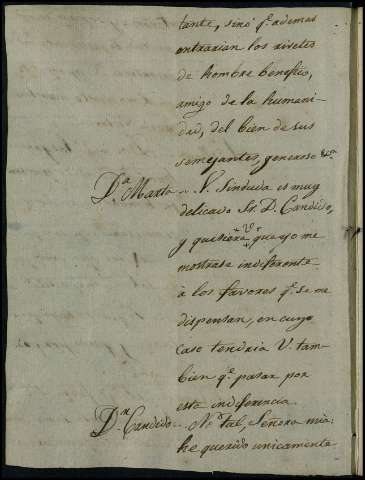 tante, sino q.e ademas
entrarian los rivetes
de hombre benefico,
amigo de la humani-
dad, del bien de sus
semejantes, generoso &.a
D.a Marta .. V. Sinduda es muy
delicado Sr. D. Candido,
V.
y quisiera, que yo me
mostrase indiferente
à los favores q.e se me
dispensan, en cuyo
caso tendria V. tam-
bien q.e pasar por
esta indiferencia.
D.n Candido .. No tal, Señora mia:
he querido unicamente